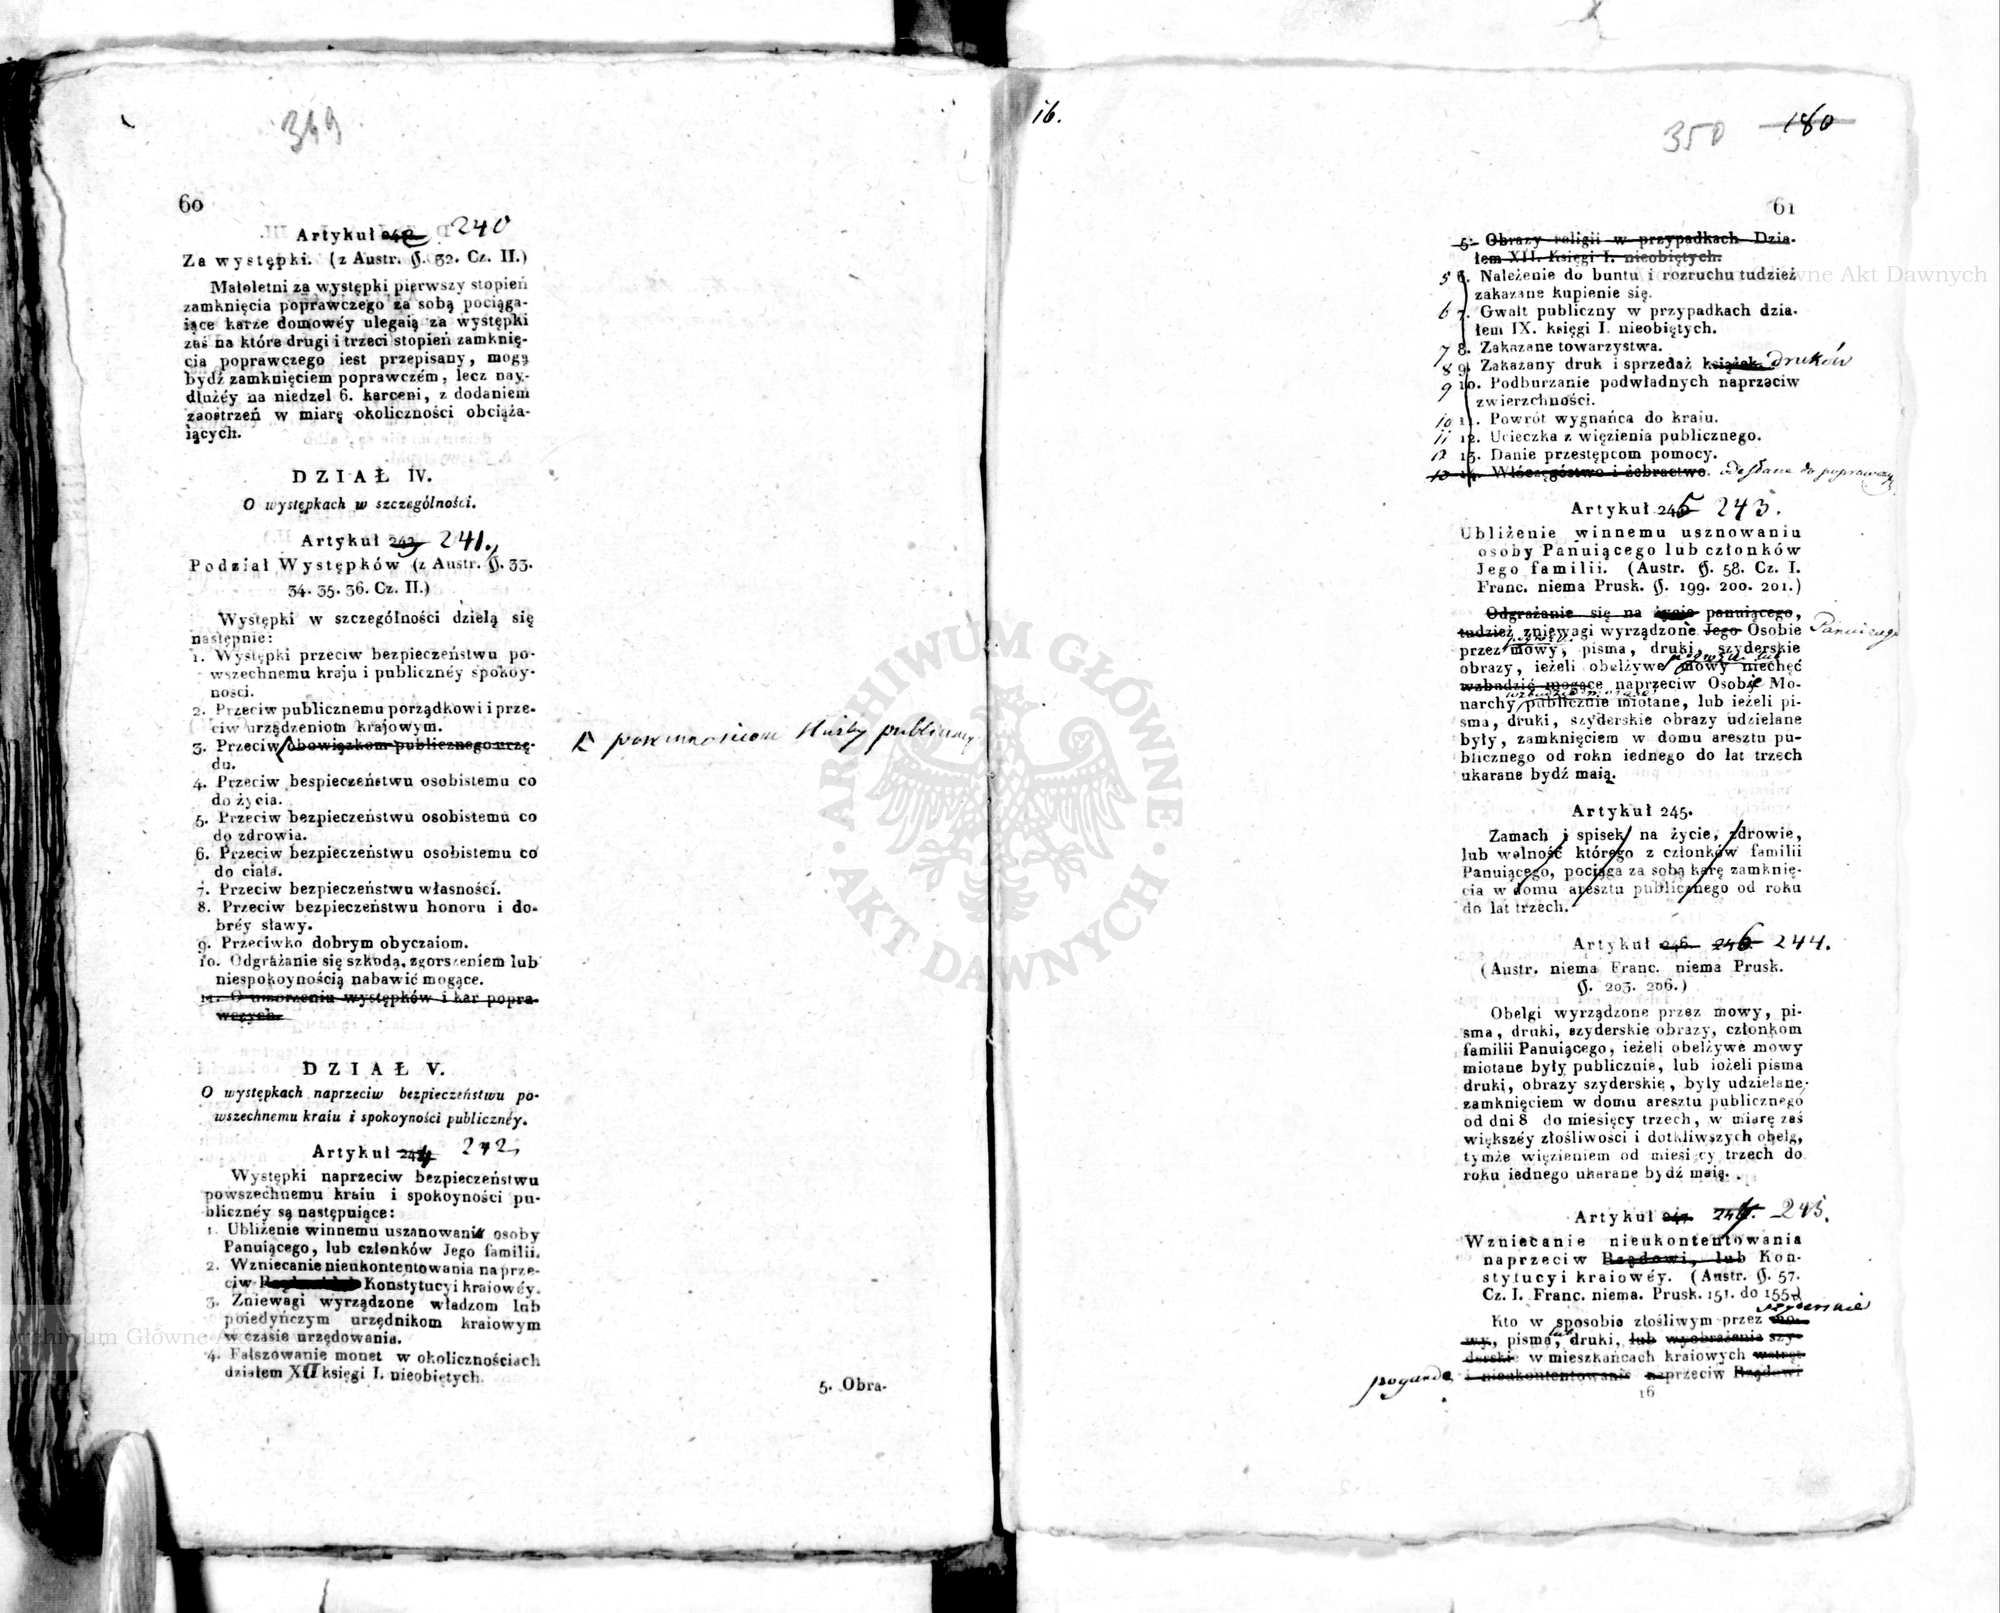 349
60
Artykuł 242. 240
Za występki. (z Austr. §. 32. Cz. II.)
Małoletni za występki pierwszy stopień
zamknięcia poprawczego za sobą pociąga-
iące karze domowéy ulegaią za występki
zaś na które drugi i trzeci stopień zamknię-
cia poprawczego iest przepisany, mogą
bydź zamknięciem poprawczém, lecz nay-
dłużéy na niedzel 6. karceni, z dodaniem
zaostrzeń w miarę okoliczności obciąża-
iących.
DZIAŁ IV.
O występkach w szczególności.
Artykuł 243. 241.
Podział Występków (z Austr. §. 33.
34. 35. 36. Cz. II.)
Występki w szczególności dzielą się
następnie:
1. Występki przeciw bezpieczeństwu po-
wszechnemu kraju i publicznéy spokoy-
ności.
2. Przeciw publicznemu porządkowi i prze-
ciw urządzeniom krajowym.
3. Przeciw obowiązkom publicznego urzę-
du.
powinnościom służby publiczney
4. Przeciw bespieczeństwu osobistemu co
do życia.
5. Przeciw bezpieczeństwu osobistemu co
do zdrowia.
6. Przeciw bezpieczeństwu osobistemu co
do ciała.
7. Przeciw bezpieczeństwu własności.
8. Przeciw bezpieczeństwu honoru i do-
bréy sławy.
9. Przeciwko dobrym obyczaiom.
10. Odgrażanie się szkodą, zgorszeniem lub
niespokoynością nabawić mogące.
11. O umorzeniu występków i kar popra-
wczych.
DZIAŁ V.
O występkach naprzeciw bezpieczeństwu po-
wszechnemu kraiu i spokoyności publicznéy.
Artykuł 244 242,
Występki naprzeciw bezpieczeństwu
powszechnemu kraiu i spokoyności pu-
blicznéy są następuiące:
1. Ubliżenie winnemu uszanowaniu osoby
Panuiącego, lub członków Jego familii.
2. Wzniecanie nieukontentowania naprze-
ciw Konstytucyi kraiowéy.
3. Zniewagi wyrządzone władzom lub
poiedyńczym urzędnikom kraiowym
w czasie urzędowania.
4. Fałszowanie monet w okolicznościach
działem XII księgi I. nieobiętych.
5. Obra-
16.
350 180
61
5. Obrazy religii w przypadkach Dzia-
łem XII. Księgi I. nieobiętych.
5 6. Należenie do buntu i rozruchu tudzież
zakazane kupienie się.
6 7. Gwałt publiczny w przypadkach dzia-
łem IX. księgi I. nieobiętych.
7 8. Zakazane towarzystwa.
8 9. Zakazany druk i sprzedaż książek druków
9 10. Podburzanie podwładnych naprzeciw
zwierzchności.
10 11. Powrót wygnańca do kraiu.
11 12. Ucieczka z więzienia publicznego.
12 13. Danie przestępcom pomocy.
13 14. Włóczęgóstwo i żebractwo. odesłane do poprawczy
Artykuł 245 243.
Ubliżenie winnemu usznowaniu
osoby Panuiącego lub członków
Jego familii. (Austr. §. 58. Cz. I.
Franc. niema Prusk. §. 199. 200. 201.)
Odgrażanie się na życie panuiącego,
tudzież zniewagi wyrządzone Jego Osobie Panuiącego
przez mowy, pisma, druki, szyderskie
obrazy, ieżeli obelżywe mowy niechęć
wzbudzić mogące naprzeciw Osobie Mo-
narchy publicznie miotane, lub ieżeli pi-
sma, druki, szyderskie obrazy udzielane
były, zamknięciem w domu aresztu pu-
blicznego od rokn iednego do lat trzech
ukarane bydź maią.
Artykuł 245.
Zamach i spisek na życie, zdrowie,
lub wolność którego z członków familii
Panuiącego, pociąga za sobą karę zamknię-
cia w domu aresztu publicznego od roku
do lat trzech.
Artykuł 246. 246. 244.
(Austr. niema Franc. niema Prusk.
§. 203. 206.)
Obelgi wyrządzone przez mowy, pi-
sma, druki, szyderskie obrazy, członkom
familii Panuiącego, ieżeli obelżywe mowy
miotane były publicznie, lub ieżeli pisma
druki, obrazy szyderskie, były udzielane,
zamknięciem w domu aresztu publicznego
od dni 8 do miesięcy trzech, w miarę zaś
większéy złośliwości i dotkliwszych obelg,
tymże więzieniem od miesięcy trzech do
roku iednego ukarane bydź maią.
Artykuł 247 245.
Wzniecanie nieukontentowania
naprzeciw Rządowi, lub Kon-
stytucyi kraiowéy. (Austr. §. 57.
Cz. I. Franc. niema. Prusk. 151. do 155.)
szyderskie
Kto w sposobie złośliwym przez mo-
wy, pisma, druki, lub wyobrażenia szy-
derskie w mieszkańcach kraiowych wstręt
pogardę i nieukontentowanie naprzeciw Rządowi
16
ARCHIWUM GŁÓWNE · AKT DAWNYCH ·